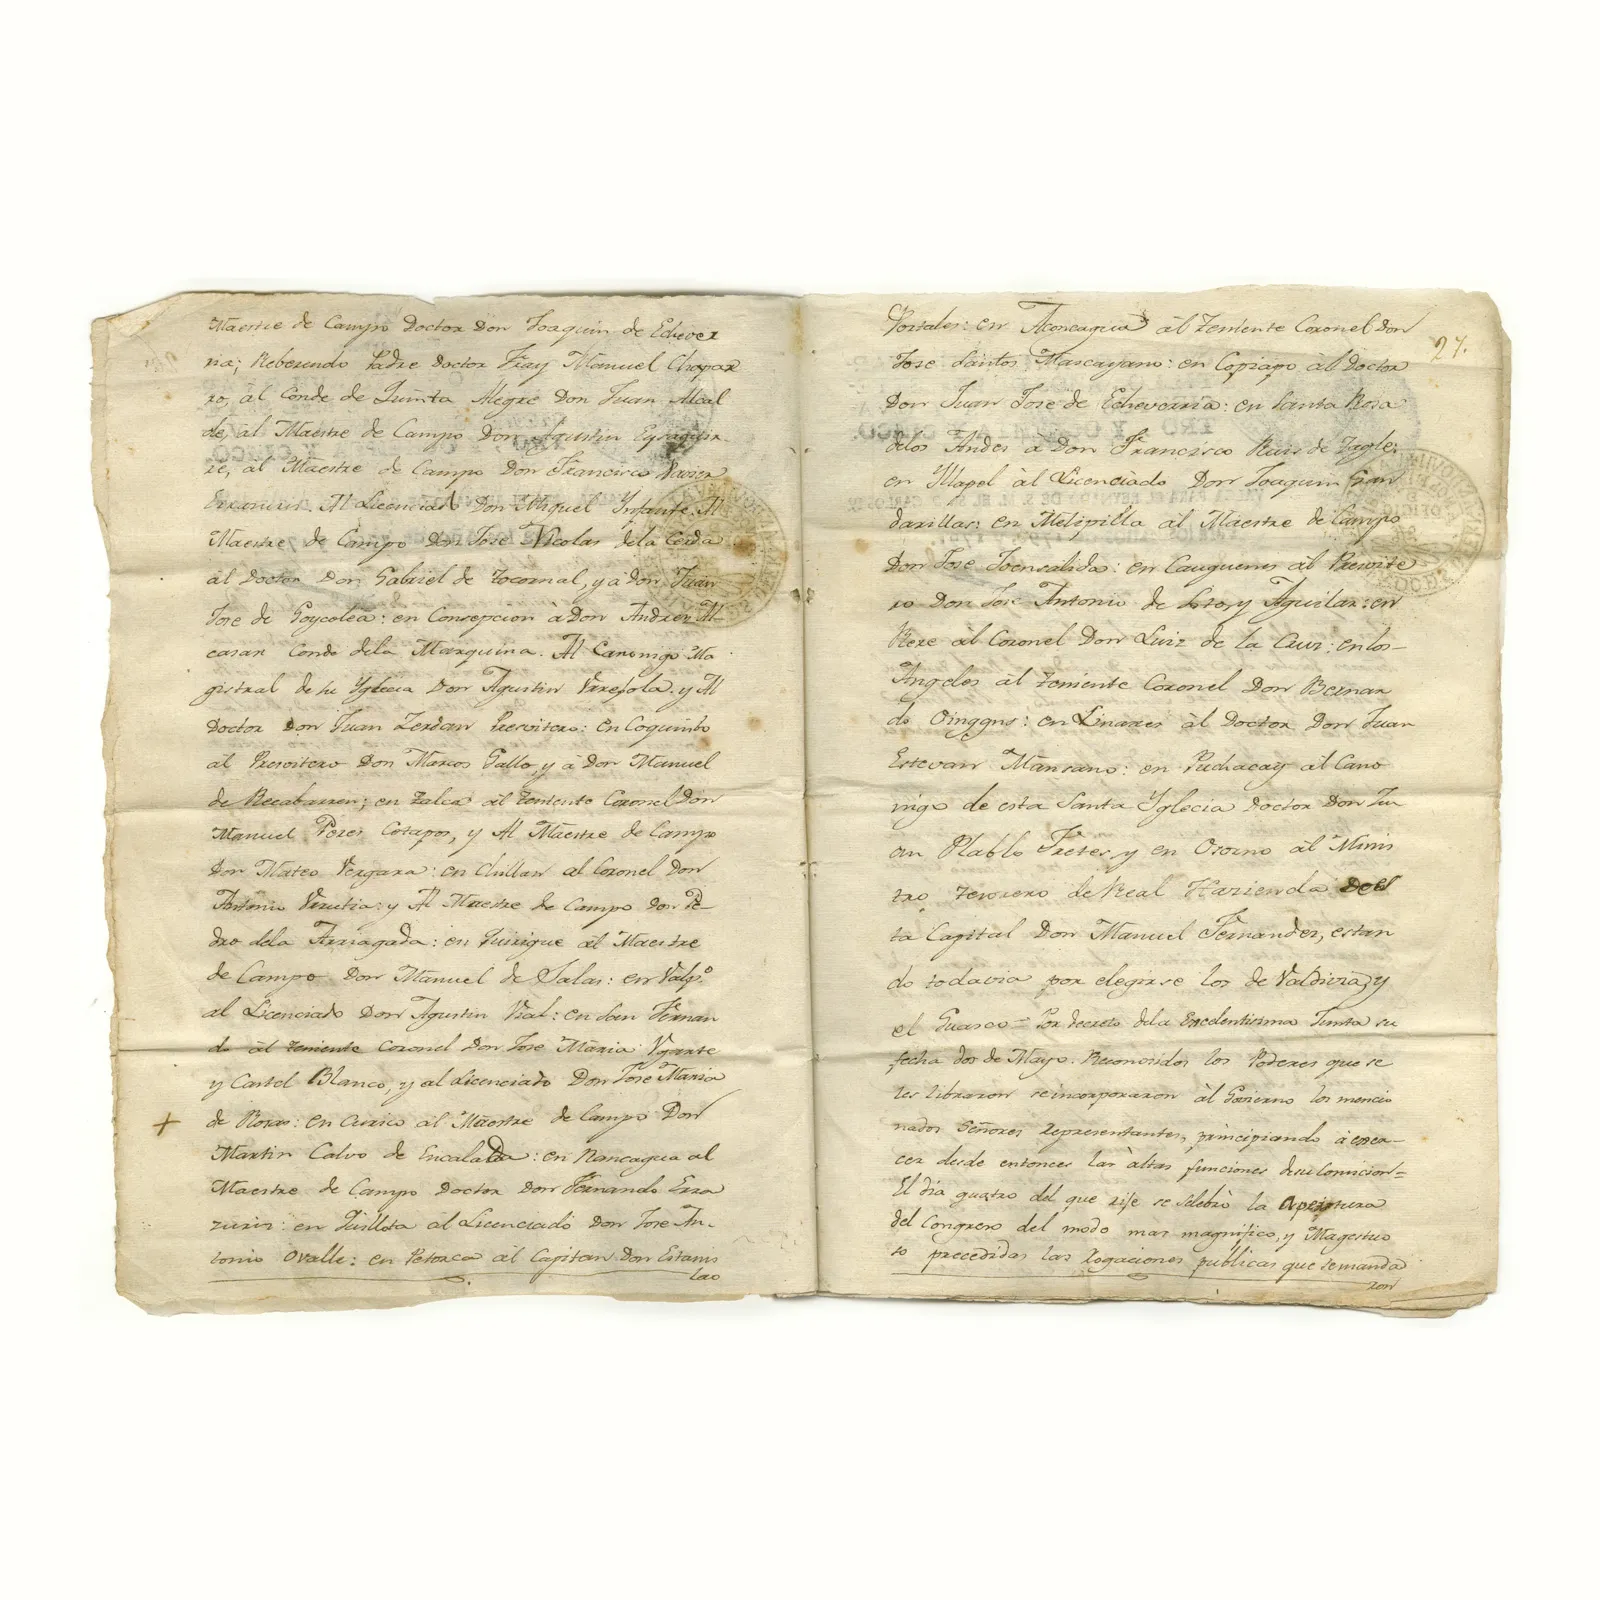 Maestre de Campo Doctor Don Joaquin de Echever
ria; Reberendo Padre Doctor Fray Manuel Chopar
ro, al Conde de Quinta Alegre Don Juan Alcal
de, al Maestre de Campo Don Agustin Eysaguir
re, al Maestre de Campo Don Francisco Xavier
Errasuris. Al Licenciado Don Miguel Ynfante. Al
Maestre de Campo Don Jose Nicolas dela Cerda
àl Doctor Don Gabriel de Tocornal, y à Don Juan
Jose de Goycolea: en Concepcion à Don Andres Al-
casar Conde dela Marquina. Al Canonigo Ma
gistral de su Yglecia Don Agustin Vrrejola. y Al
Doctor Don Juan Zerdan Presvitero: en Coquimbo
al Presvitero Don Marcos Gallo, y à Don Manuel
de Recabarren; en Talca àl Teniente Coronel Don
Manuel Peres Cotapos, y Al Maestre de Campo
Don Mateo Vergara: en Chillan al Coronel Don
Antonio Vrrutia: y Al Maestre de Campo Don Pe-
dro dela Arriagada: en Quirigue àl Maestre
de Campo Don Manuel de Salas: en Valp.º
al Licenciado Don Agustin Vial: en San Fernan
do àl Teniente Coronel Don Jose Maria Vgarte
y Castel Blanco, y al Licenciado Don Jose Maria
+ de Rosas: en Curico al Maestre de Campo Don
Martin Calvo de Encalada: en Rancagua al
Maestre de Campo Doctor Don Fernando Erra
zuris: en Quillota àl Licenciado Don Jose An-
tonio Ovalle: en Petorca àl Capitan Don Estanis
lao
27.
Portales: en Aconcagua àl Teniente Coronel Don
Jose Santos Mascayano: en Copiapo àl Doctor
Don Juan Jose de Echeverria: en Santa Rosa
delos Andes à Don Francisco Ruis de Tagle:
en Yllapel àl Licenciado Don Joaquin Gan
darillas: en Melipilla àl Maestre de Campo
Don Jose Foensalida: en Cauguenes àl Presvite
ro Don Jose Antonio de Soto, y Aguilar: en
Rere àl Coronel Don Luis de la Crus: en los-
Angeles àl Teniente Coronel Don Bernar
do Oinggns: en Linares àl Doctor Don Juan
Estevan Mansano: en Puchacay àl Cano
nigo de esta Santa Yglecia Doctor Don Ju
an Plablo Fretes, y en Osorno àl Minis
tro Tesorero de Real Hazienda des
ta Capital Don Manuel Fernandes, estan
do todavia por elegirse los de Valdivia, y
el Guasco = Por decreto dela Excelentisima Junta su
fecha dos de Mayo. Reconosidos los Poderes que se
les libraron se incorporaron àl Govierno los mencio
nados Señores Representantes, principiando à exer-
cer desde entonces las àltas funciones desu Comicion=
El dia quatro del que rije se selebrò la Apertura
del Congreso del modo mas magnifico, y Magestuo
so precedidas las rogaciones publicas que semanda
ron